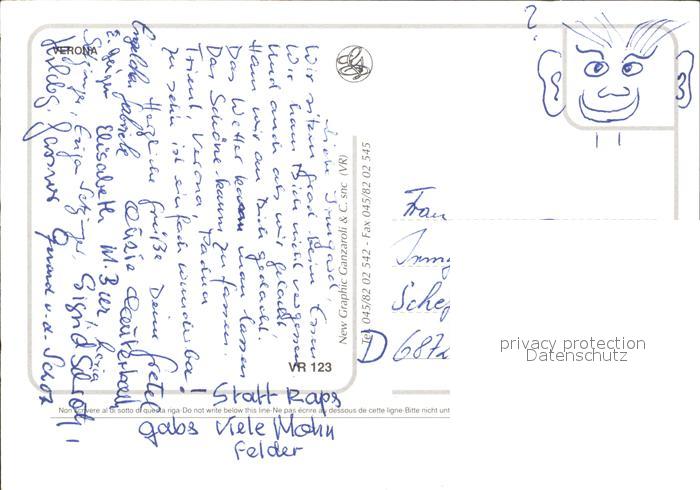 VERONA
Liebe Irmgard,
Wir sitzen grad beim Essen
Wir ham Dich nicht vergessen
Und auch als wir gelacht,
Ham wir an Dich gedacht.
Das Wetter kann man lassen
Das Schöne kaum zu fassen.
Trient, Verona, Padua
zu sehn ist einfach wunderbar!
Herzliche Grüße Deine Gretel
Elisabeth M. Bier,
Sigrid
Statt Raps
gabs viele Mohn
Felder
VR 123
New Graphic Ganzaroli & C. snc (VR)
Tel. 045/82 02 542 - Fax 045/82 02 545
Non scrivere al di sotto di questa riga-Do not write below this line-Ne pas écrire au dessous de cette ligne-Bitte nicht unt
?
Frau
Irmg
Schef
D 6872
privacy protection
Datenschutz